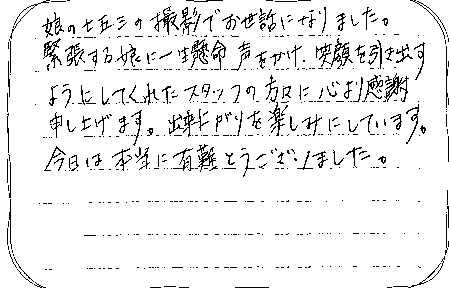 娘の七五三の撮影でお世話になりました。
緊張する娘に一生懸命声をかけ、笑顔を引き出す
ようにしてくれたスタッフの方々に心より感謝
申し上げます。出来上がりを楽しみにしています。
今日は本当に有難とうございました。